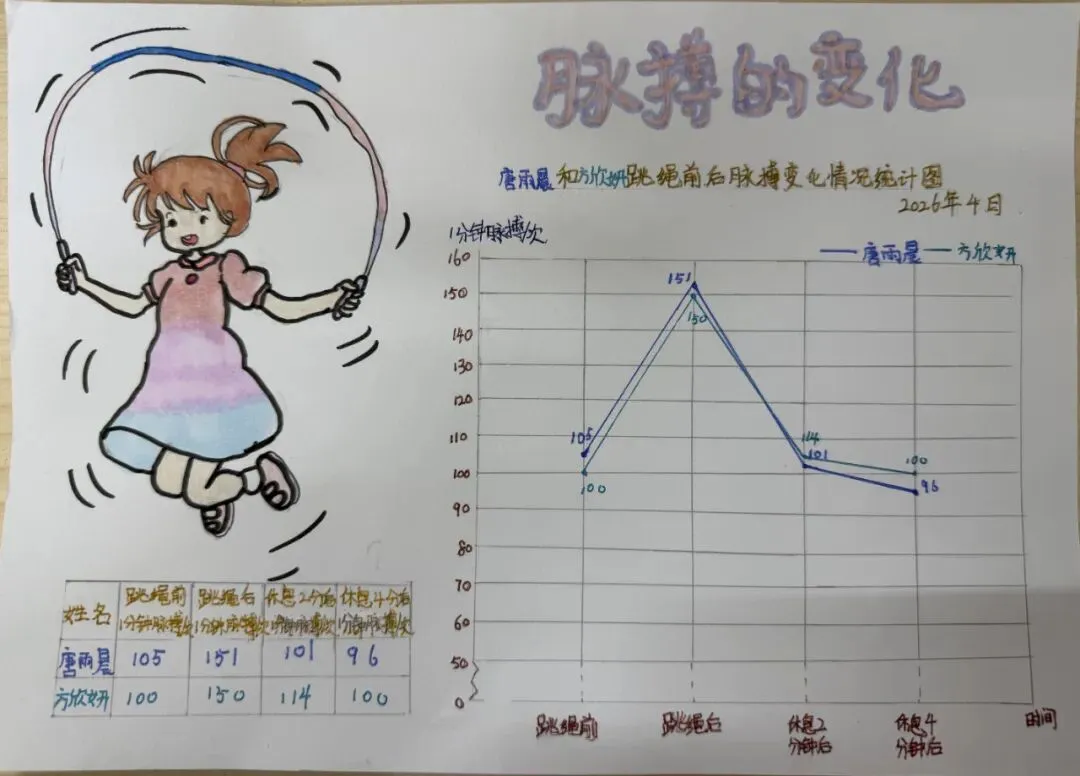 脉搏的变化
唐雨晨和方欣妍跳绳前后脉搏变化情况统计图
2026年4日
1分钟脉搏/次
唐雨晨 方欣妍
160
150
140
130
120
110
100
90
80
70
60
50
0
105
100
151
150
114
101
100
96
跳绳前
跳绳后
休息2
分钟后
休息4
分钟后
时间
姓名 跳绳前1分钟脉搏/次 跳绳后1分钟脉搏/次 休息2分后1分钟脉搏/次 休息4分后1分钟脉搏/次
唐雨晨 105 151 101 96
方欣妍 100 150 114 100